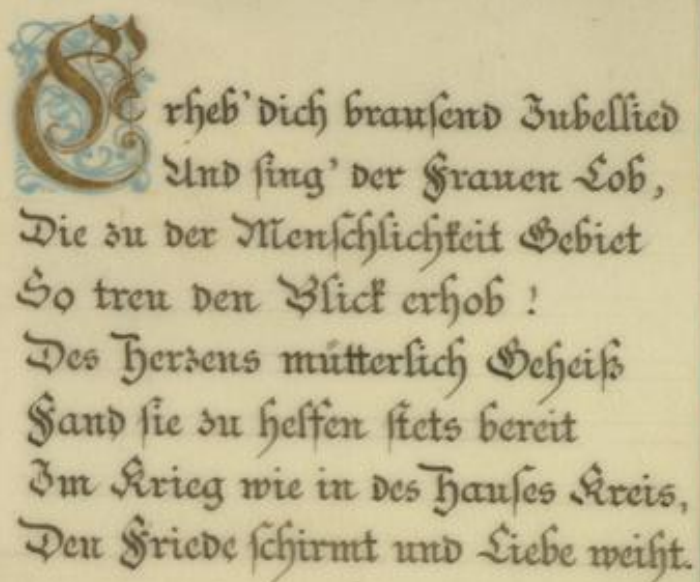 Erheb' dich brausend Jubellied
Und sing' der Frauen Lob,
Die zu der Menschlichkeit Gebiet
So treu den Blick erhob !
Des Herzens mütterlich Geheiß
Fand sie zu helfen stets bereit
Im Krieg wie in des Hauses Kreis,
Den Friede schirmt und Liebe weiht.